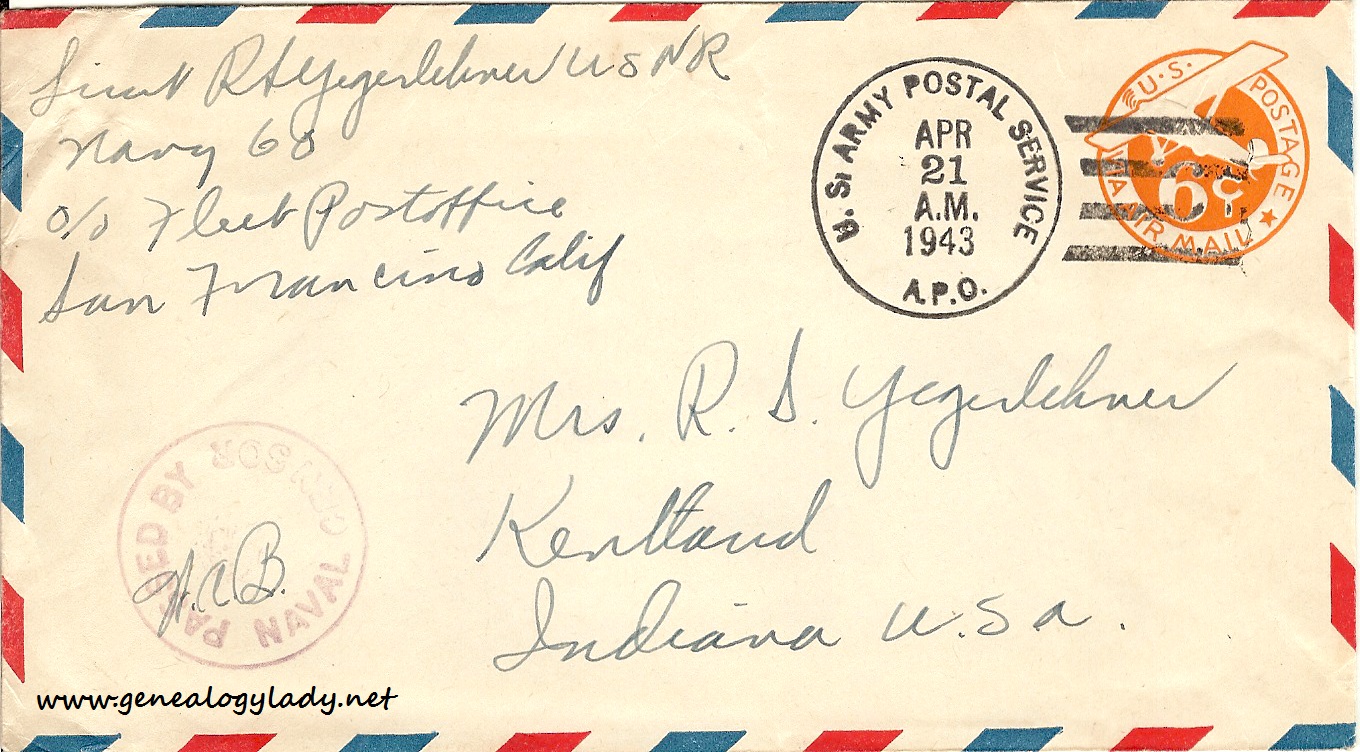 Lieut R S Yegerlehner USNR
Navy 60
c/o Fleet Postoffice
San Francisco Calif
U.S. ARMY POSTAL SERVICE
APR
21
A.M.
1943
A.P.O.
U.S. POSTAGE
VIA AIR MAIL
6¢
Mrs. R. S. Yegerlehner
Kentland
Indiana U.S.a.
PASSED BY
NAVAL CENSOR
www.genealogylady.net